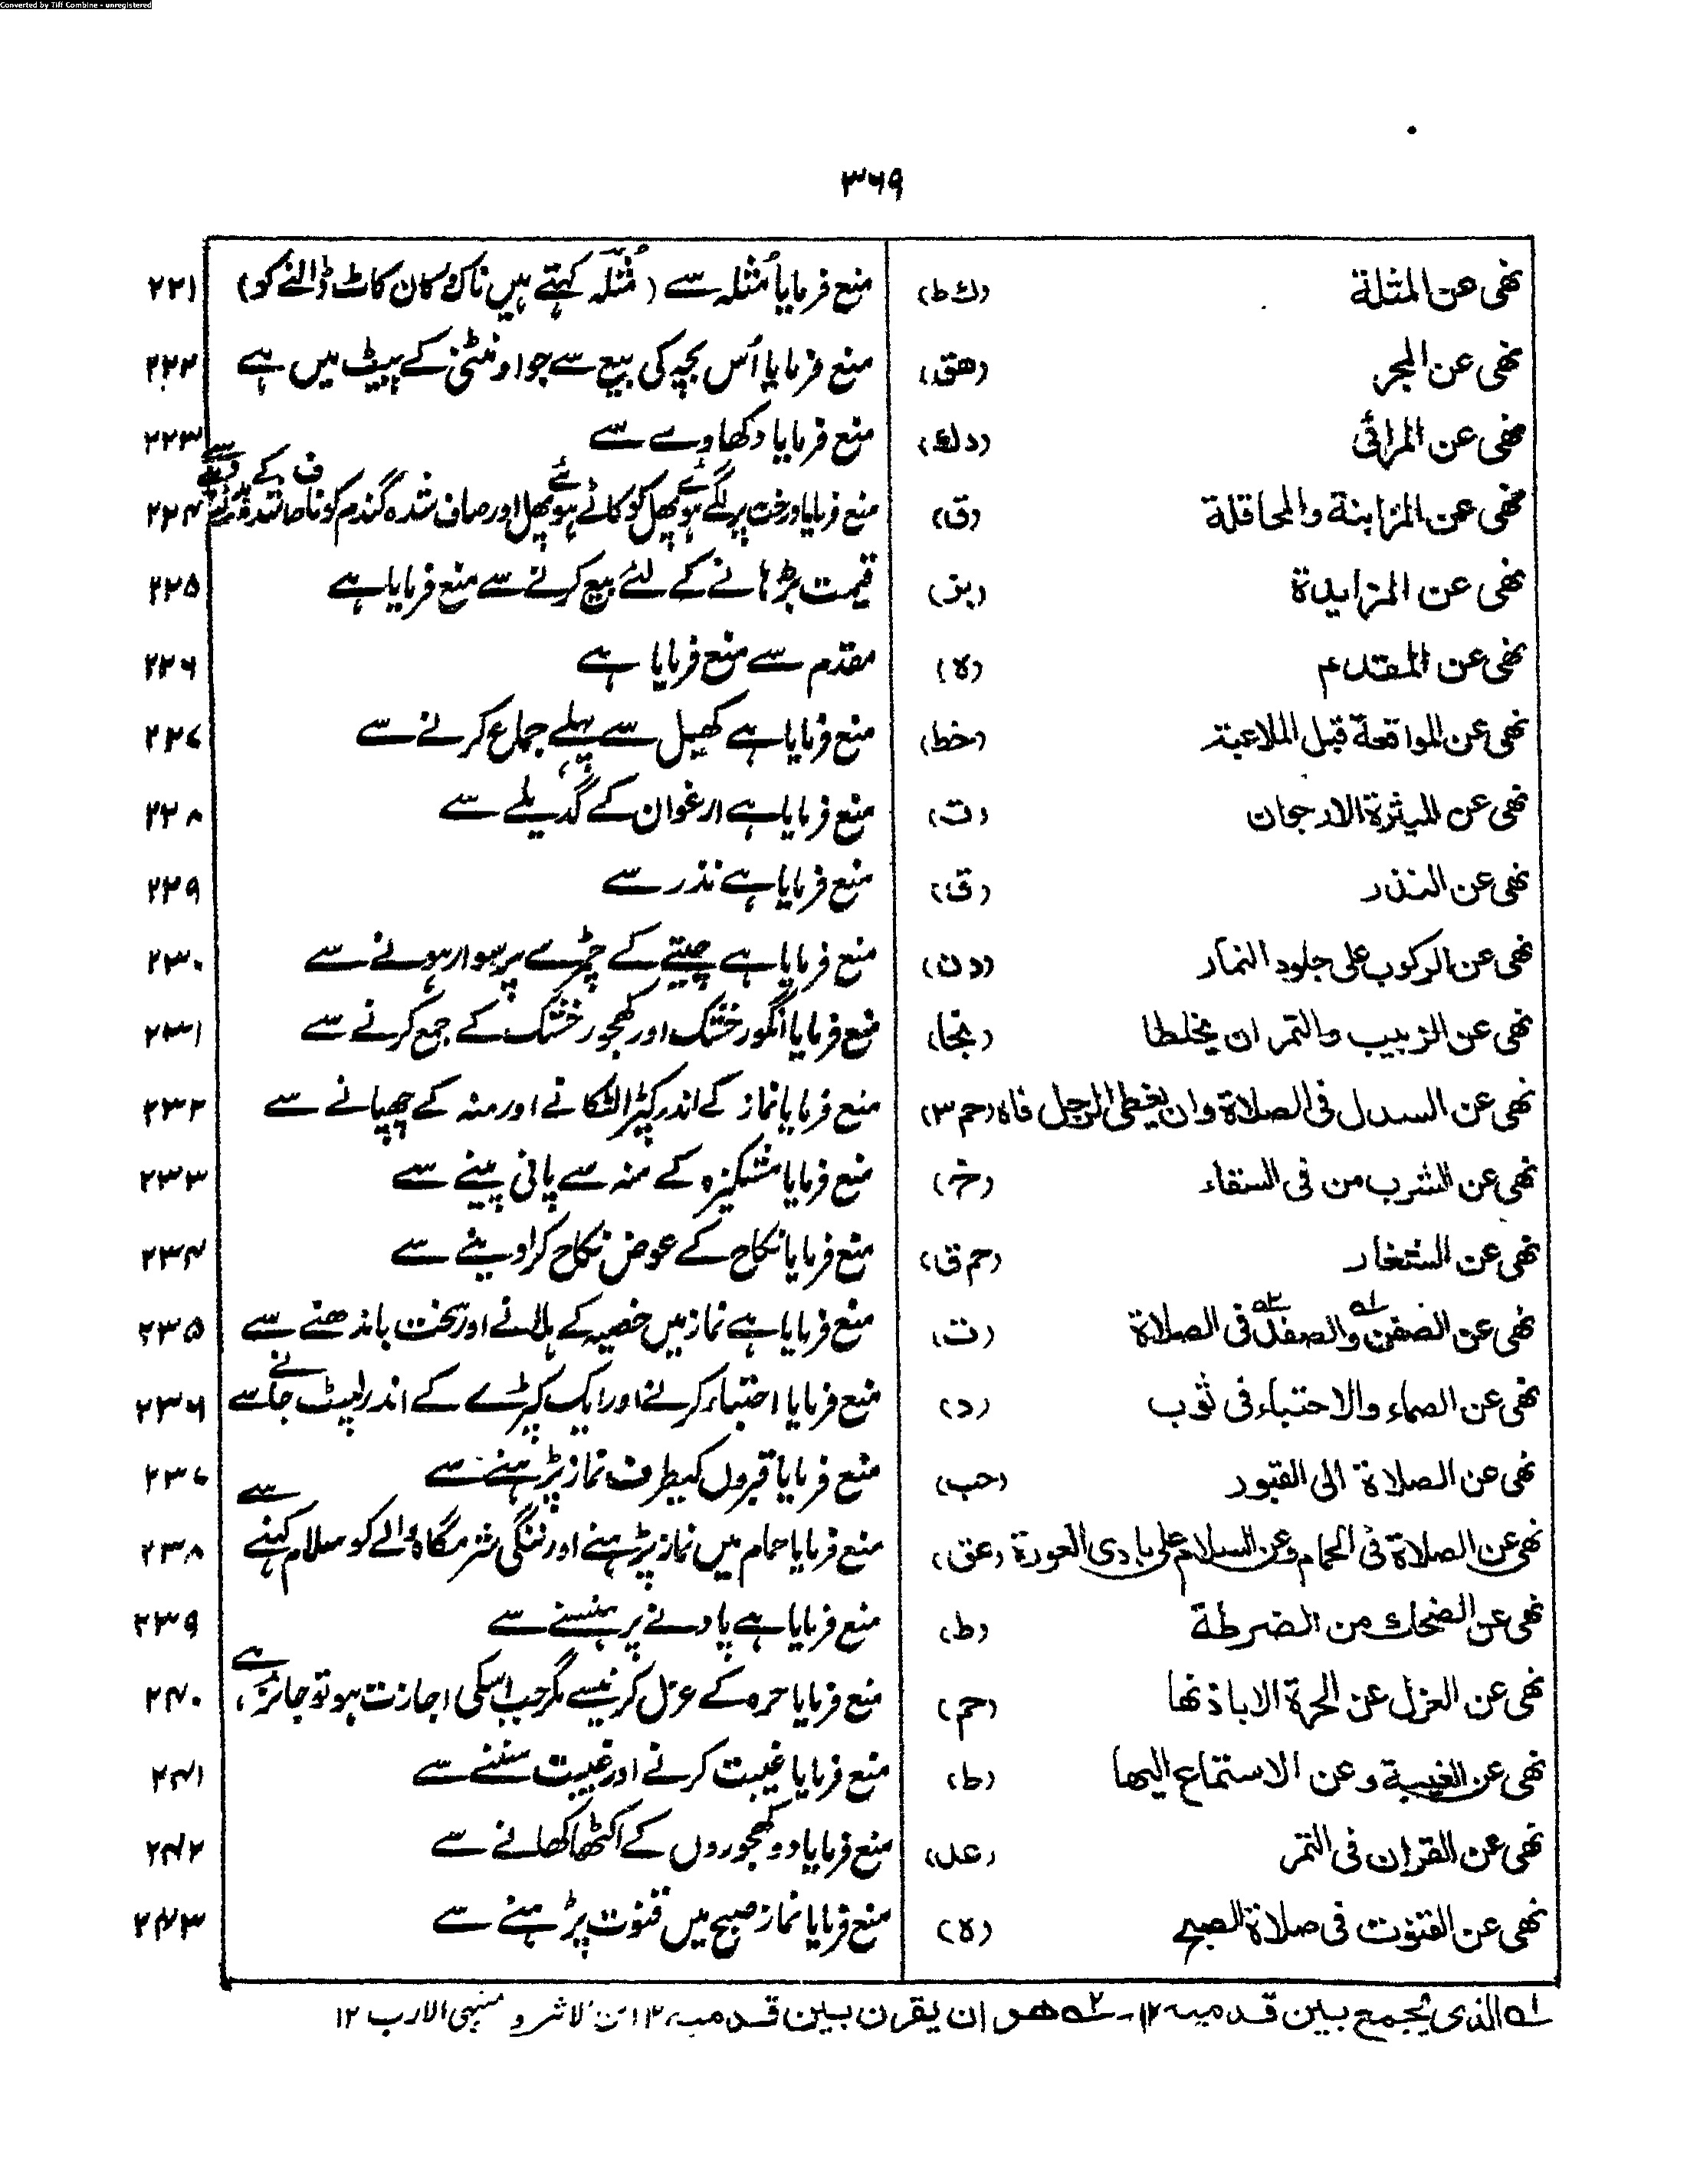 Converted by Tiff Combine - unregistered
۳۶۹
نهى عن المثلة (ك ط) منع فرمایا مُثلہ سے (مُثلہ کہتے ہیں ناک کان کاٹ ڈالنے کو) ۲۲۱
نهى عن المجر (هق) منع فرمایا اُس بچہ کی بیع سے جو اونٹنی کے پیٹ میں ہے ۲۲۲
نهى عن المراثى منع فرمایا دکھاوے سے ۲۲۳
نهى عن المزابنة والمحاقلة (ق) منع فرمایا درخت پر لگے ہوئے پھل کو کاٹے ہوئے پھل اور صاف شدہ گندم کو ناصاف شدہ کے سے ۲۲۴
نهى عن المزايدة (بز) قیمت بڑہانے کے لئے بیع کرنے سے منع فرمایا ہے ۲۲۵
نهى عن المقدم (ه) مقدم سے منع فرمایا ہے ۲۲۶
نهى عن المواقعة قبل الملاعبة (خط) منع فرمایا ہے کھیل سے پہلے جماع کرنے سے ۲۲۷
نهى عن الميثرة الارجوان (ت) منع فرمایا ہے ارغوان کے گدیلے سے ۲۲۸
نهى عن النذر (ق) منع فرمایا ہے نذر سے ۲۲۹
نهى عن الركوب على جلود النمار (دن) منع فرمایا ہے چیتے کے چمڑے پر سوار ہونے سے ۲۳۰
نهى عن الزبيب والتمر ان يخلطا منع فرمایا انگور خشک اور کھجور خشک کے جمع کرنے سے ۲۳۱
نهى عن السدل فى الصلاة وان يغطى الرجل فاه (حم ۳) منع فرمایا نماز کے اندر کپڑا لٹکانے اور منہ کے چھپانے سے ۲۳۲
نهى عن الشرب من فى السقاء (خ) منع فرمایا مشکیزہ کے منہ سے پانی پینے سے ۲۳۳
نهى عن الشغار (حم ق) منع فرمایا نکاح کے عوض نکاح کرا دینے سے ۲۳۴
نهى عن الصفن ؎۱ والصفد ؎۲ فى الصلاة (ت) منع فرمایا ہے نماز میں خصیہ کے ہلانے اور سخت باندھنے سے ۲۳۵
نهى عن الصماء والاحتباء فى ثوب (د) منع فرمایا احتباء کرنے اور ایک کپڑے کے اندر لپیٹ جانے سے ۲۳۶
نهى عن الصلاة الى القبور (حب) منع فرمایا قبروں کیطرف نماز پڑہنے سے ۲۳۷
نهى عن الصلاة فى الحمام وعن السلام على بادى العورة (عق) منع فرمایا حمام میں نماز پڑہنے اور ننگی شرمگاہ والے کو سلام کہنے سے ۲۳۸
نهى عن الضحك من الضرطة (ط) منع فرمایا ہے پادنے پر ہنسنے سے ۲۳۹
نهى عن العزل عن الحرة الا باذنها (حم) منع فرمایا حرہ کے عزل کرنیسے مگر جب اسکی اجازت ہو تو جائز ہے، ۲۴۰
نهى عن الغيبة وعن الاستماع اليها (ط) منع فرمایا غیبت کرنے اور غیبت سننے سے ۲۴۱
نهى عن القران فى التمر (عد) منع فرمایا دو کھجوروں کے اکٹھا کھانے سے ۲۴۲
نهى عن القنوت فى صلاة الصبح (ه) منع فرمایا نماز صبح میں قنوت پڑہنے سے ۲۴۳
؎۱ الذى يجمع بين قدميه ۱۲ - ؎۲ هو ان يقرن بين قدميه ۱۲ منتهى الارب ۱۲